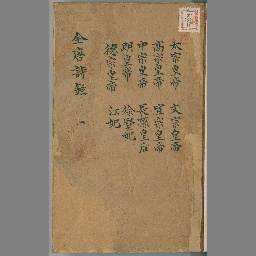 太宗皇帝 文宗皇帝
高宗皇帝 宣宗皇帝
中宗皇帝 長孫皇后
明皇帝 徐賢妃
德宗皇帝 江妃
全唐詩錄 一